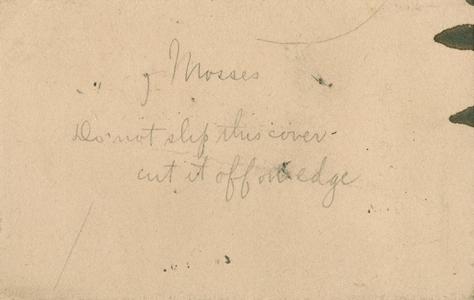 y Mosses
Do not slip this cover -
cut it off on edge